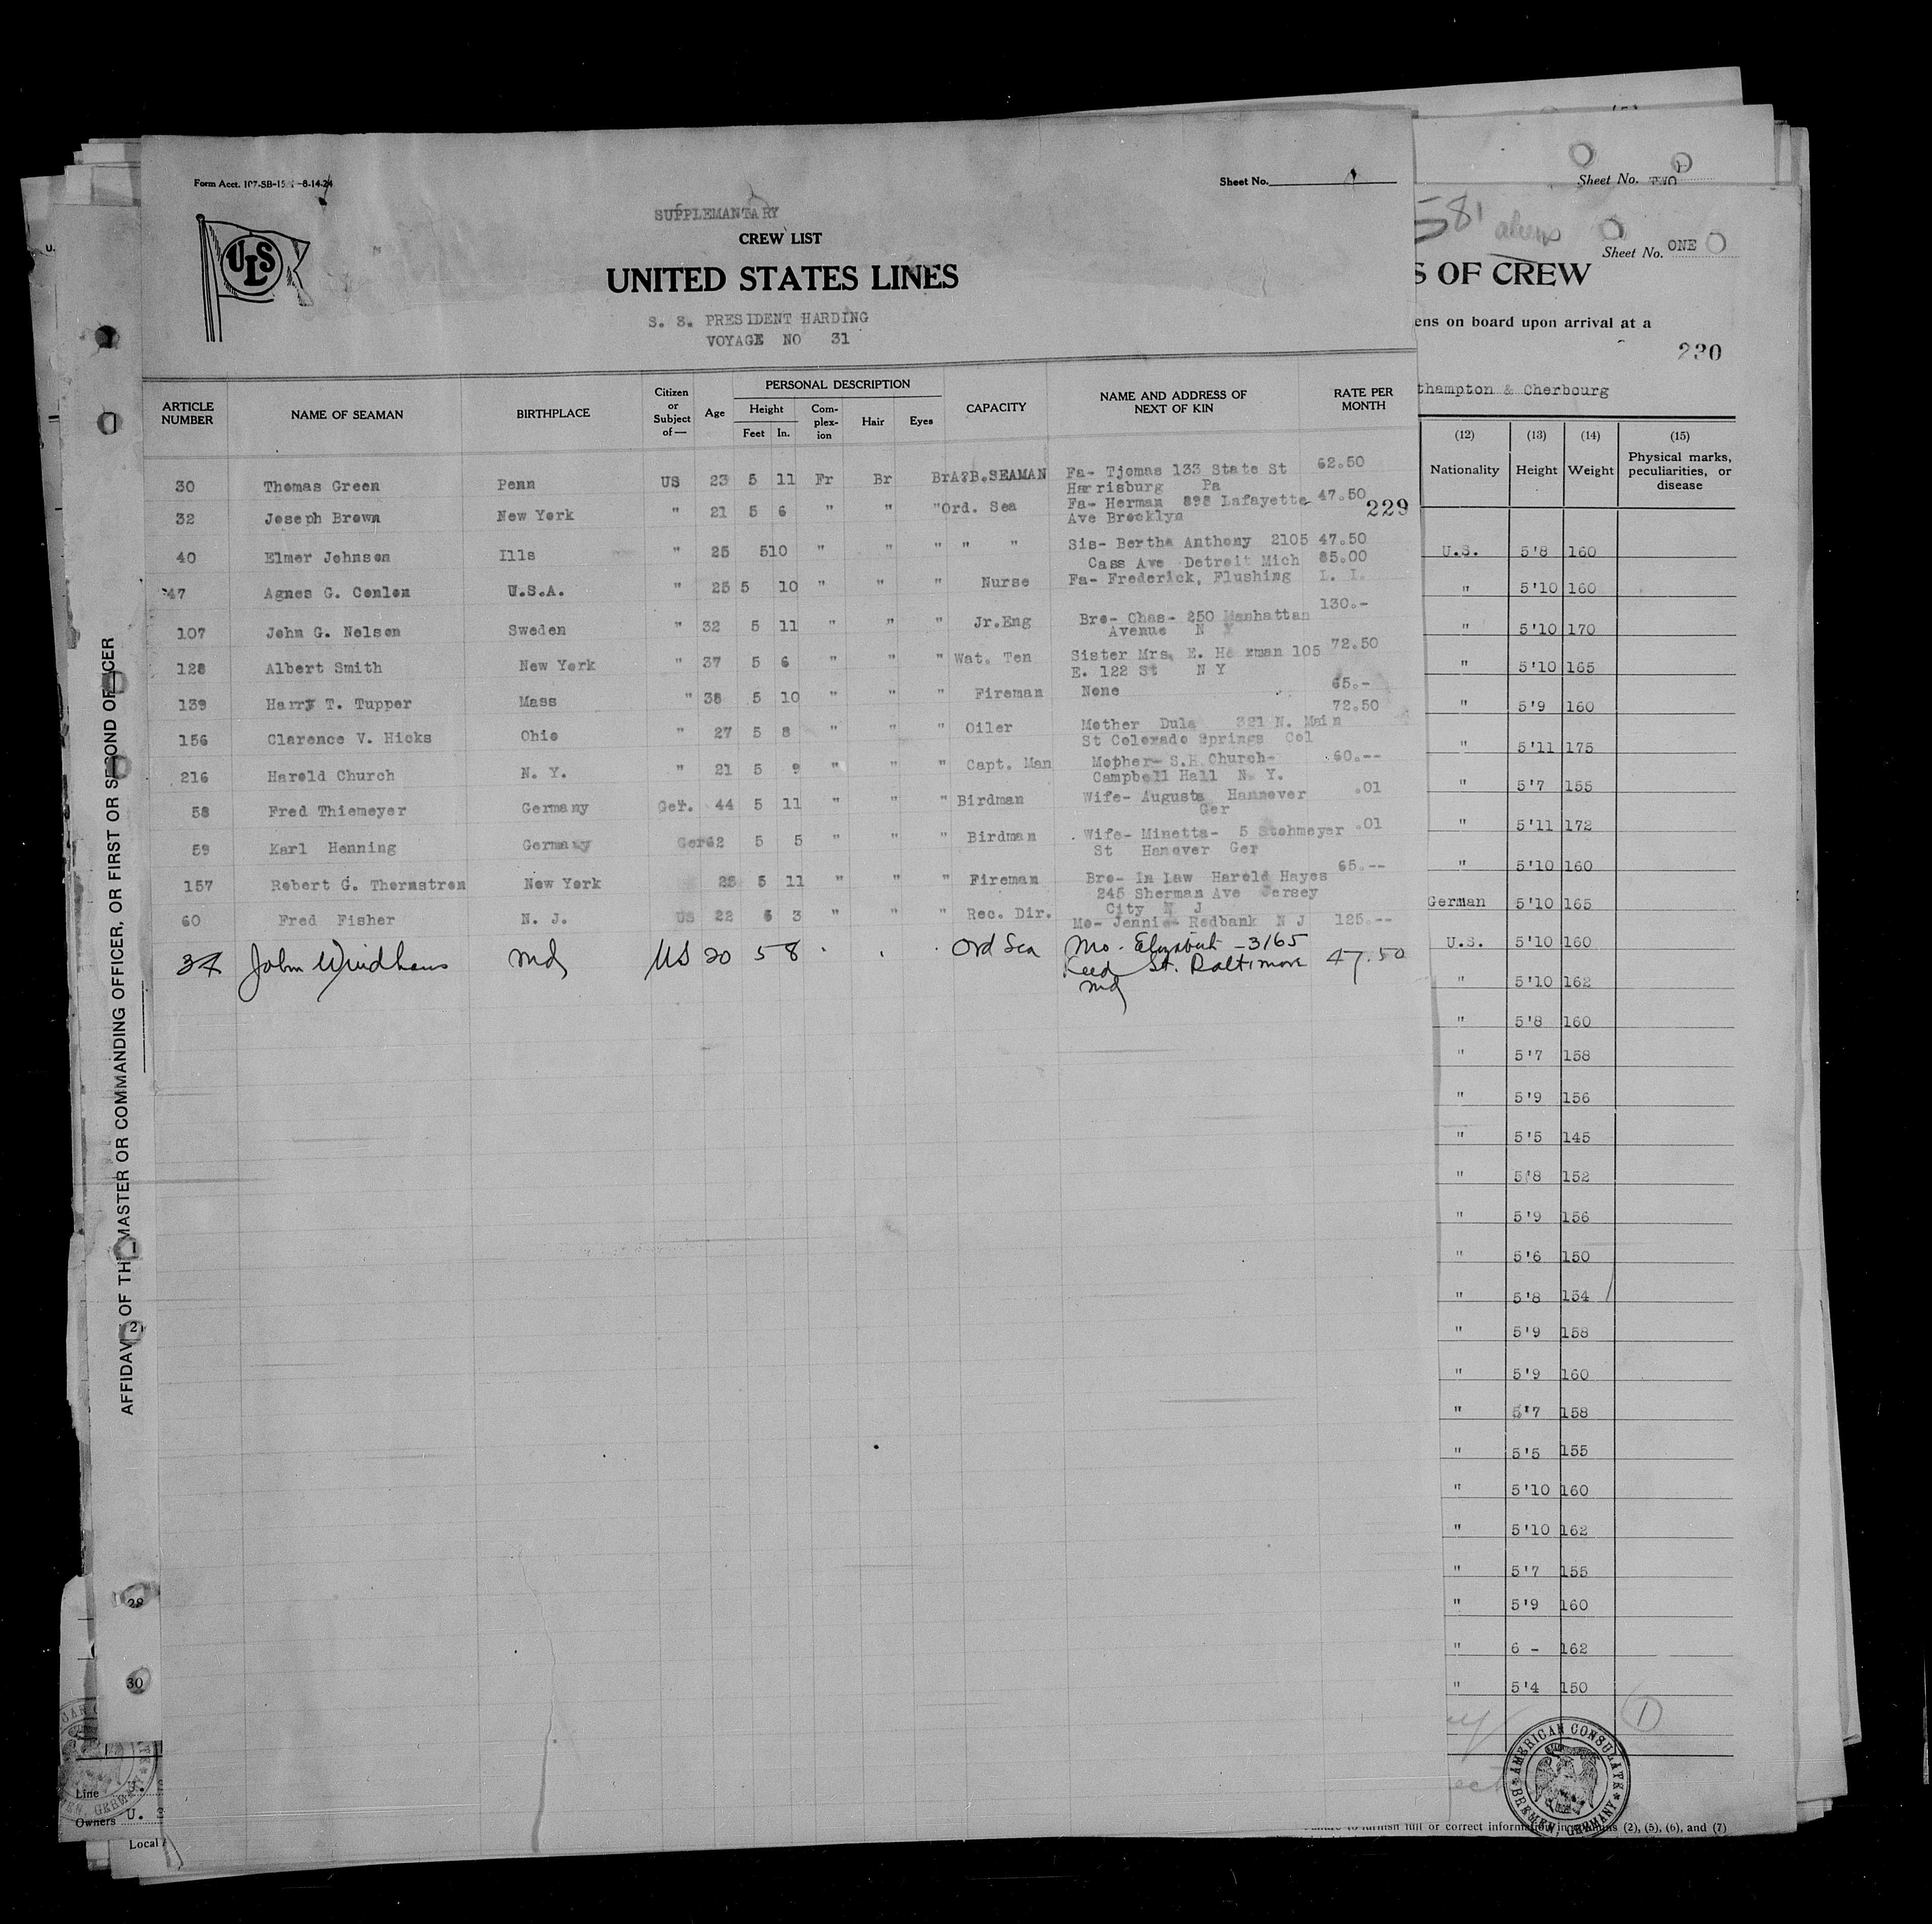 Form Acct. 107-SB-15 -8-14-24
Sheet No.
SUPPLEMANTARY
CREW LIST
UNITED STATES LINES
ULS
S. S. PRESIDENT HARDING
VOYAGE NO 31
ARTICLE NUMBER NAME OF SEAMAN BIRTHPLACE Citizen or Subject of— Age PERSONAL DESCRIPTION Height Feet In. Com-plex-ion Hair Eyes CAPACITY NAME AND ADDRESS OF NEXT OF KIN RATE PER MONTH
30 Thomas Green Penn US 23 5 11 Fr Br Br A?B.SEAMAN Fa- Tjomas 133 State St 62.50
Harrisburg Pa
32 Joseph Brown New York " 21 5 6 " " " Ord. Sea Fa- Herman 898 Lafayette 47.50
Ave Brooklyn
229
40 Elmer Johnson Ills " 25 510 " " " " " Sis- Bertha Anthony 2105 47.50
Cass Ave Detroit Mich 85.00
47 Agnes G. Conlon U.S.A. " 25 5 10 " " " Nurse Fa- Frederick, Flushing L. I.
107 John G. Nelson Sweden " 32 5 11 " " " Jr.Eng Bro- Chas- 250 Manhattan 130.-
Avenue N Y
128 Albert Smith New York " 37 5 6 " " " Wat. Ten Sister Mrs. E. He rman 105 72.50
E. 122 St N Y
139 Harry T. Tupper Mass " 38 5 10 " " " Fireman None 65.-
156 Clarence V. Hicks Ohio " 27 5 8 " " " Oiler Mother Dula 321 N. Main 72.50
St Colorado Springs Col
216 Harold Church N. Y. " 21 5 9 " " " Capt. Man Mother- S.H.Church- 60.--
Campbell Hall N. Y.
58 Fred Thiemeyer Germany Ger. 44 5 11 " " " Birdman Wife- Augusta Hannover .01
Ger
59 Karl Henning Germany Ger 62 5 5 " " " Birdman Wife- Minetta- 5 Stohmeyer .01
St Hanover Ger
157 Robert G. Thornstrom New York 25 5 11 " " " Fireman Bro- In Law Harold Hayes 65.--
245 Sherman Ave Jersey
City N J
60 Fred Fisher N. J. US 22 6 3 " " " Rec. Dir. Mo- Jennie- Redbank N J 125.--
34 John Windhaus Md US 20 5 8 Ord Sea Mo. Elizabeth -3165
Reed St. Baltimore 47.50
Md
AFFIDAVI OF TH MASTER OR COMMANDING OFFICER, OR FIRST OR SECOND OFFICER
2)
28
30
Line U. S
Owners U. S
Local
Sheet No. TWO
581 aliens
Sheet No. ONE
S OF CREW
ens on board upon arrival at a
230
thampton & Cherbourg
(12) (13) (14) (15)
Nationality Height Weight Physical marks, peculiarities, or disease
U.S. 5'8 160
" 5'10 160
" 5'10 170
" 5'10 165
" 5'9 160
" 5'11 175
" 5'7 155
" 5'11 172
" 5'10 160
German 5'10 165
U.S. 5'10 160
" 5'10 162
" 5'8 160
" 5'7 158
" 5'9 156
" 5'5 145
" 5'8 152
" 5'9 156
" 5'6 150
" 5'8 154
" 5'9 158
" 5'9 160
" 5'7 158
" 5'5 155
" 5'10 160
" 5'10 162
" 5'7 155
" 5'9 160
" 6 - 162
" 5'4 150
1
AMERICAN CONSULATE
BREMEN, GERMANY
to furnish full or correct information in columns (2), (5), (6), and (7)